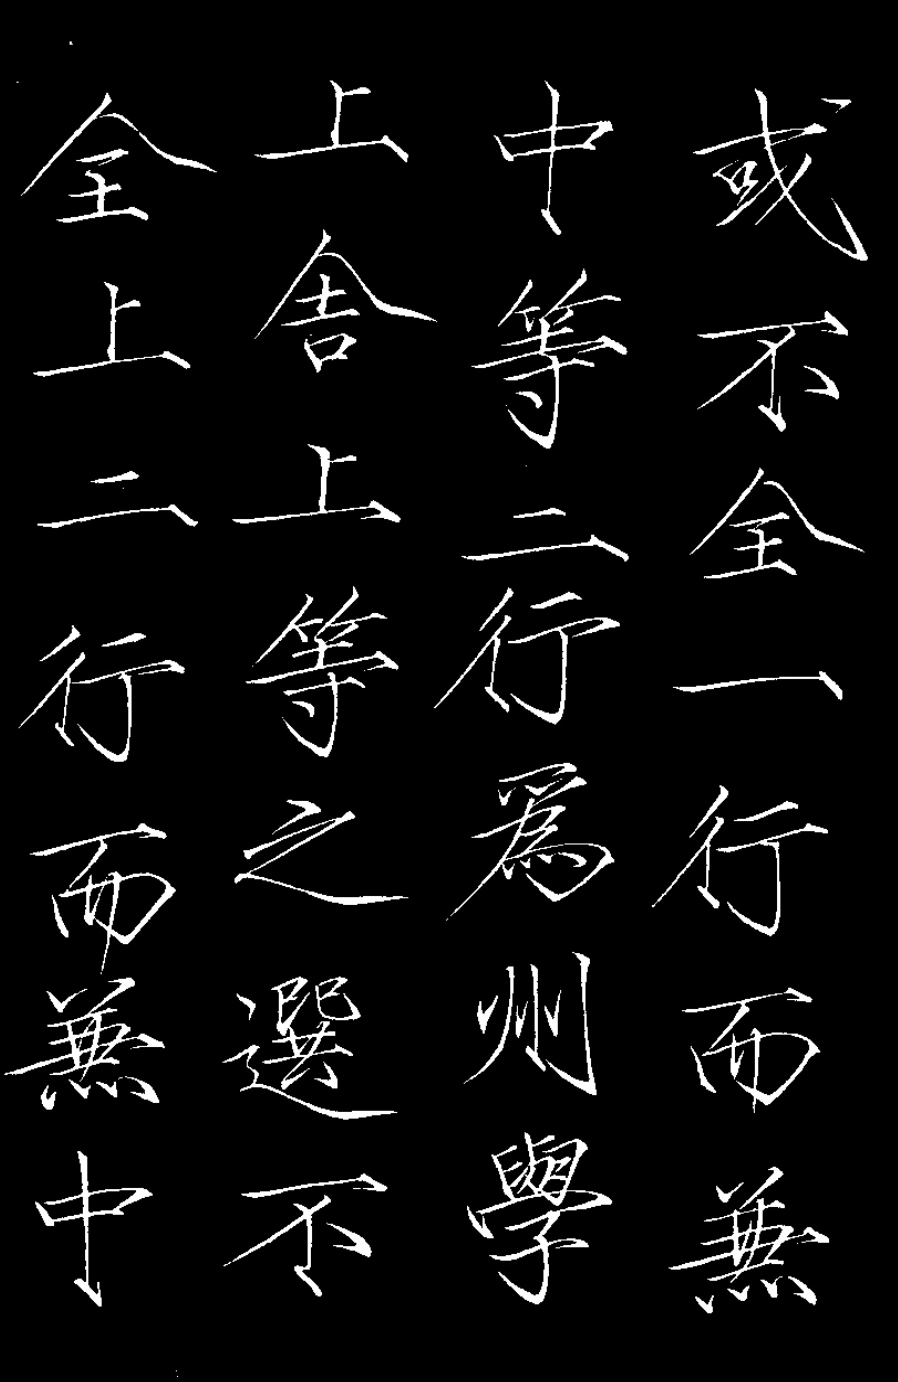 或不全一行而兼
中等二行爲州學
上舍上等之選不
全上二行而兼中